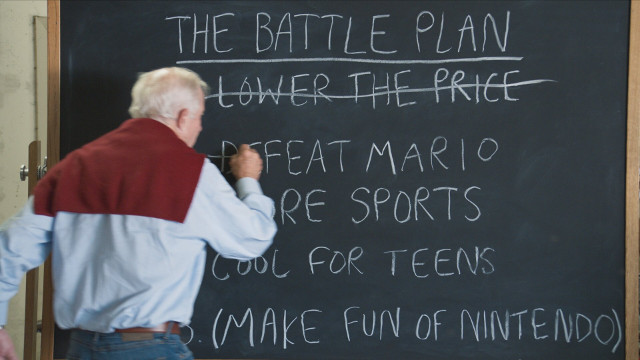 THE BATTLE PLAN
LOWER THE PRICE
DEFEAT MARIO
SPORTS
COOL FOR TEENS
5. (MAKE FUN OF NINTENDO)